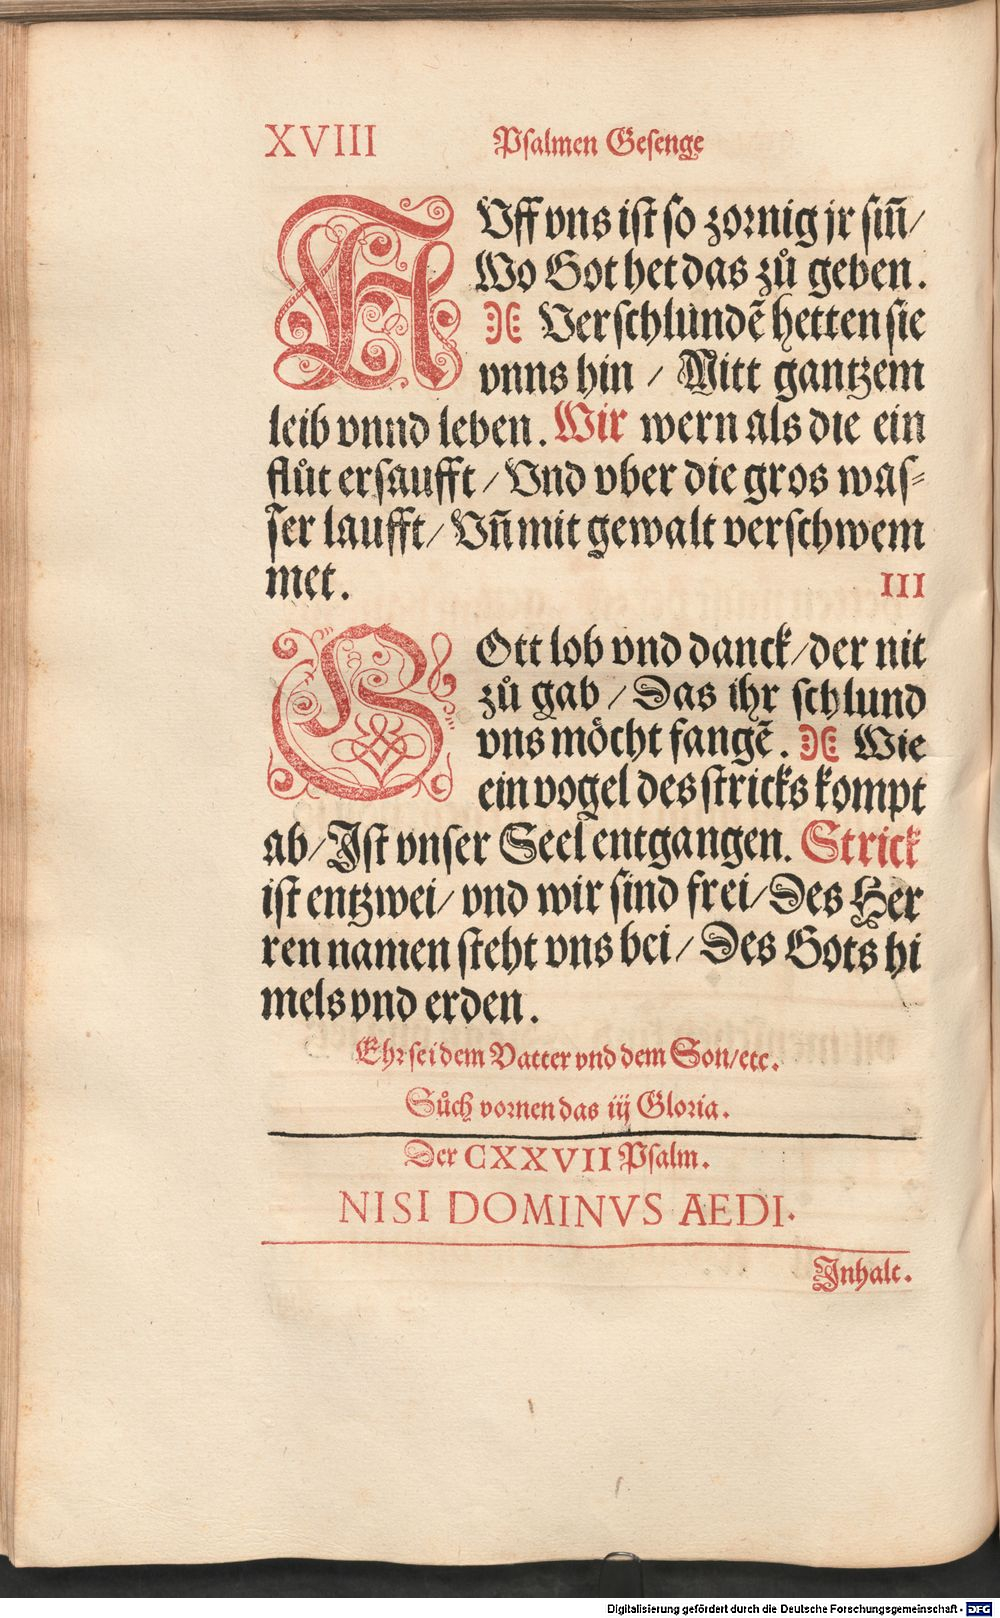 XVIII Psalmen Gesenge
AVff vns ist so zornig jr siñ/
Wo Got het das zů geben.
Verschlundẽ hetten sie
vnns hin / Mitt gantzem
leib vnnd leben. Wir wern als die ein
flůt ersaufft / Vnd vber die gros was⸗
ser laufft / Vñ mit gewalt verschwem
met. III
GOtt lob vnd danck / der nit
zů gab / Das ihr schlund
vns möcht fangẽ. Wie
ein vogel des stricks kompt
ab / Ist vnser Seel entgangen. Strick
ist entzwei / vnd wir sind frei / Des Her
ren namen steht vns bei / Des Gots hi
mels vnd erden.
Ehr sei dem Vatter vnd dem Son / etc.
Sůch vornen das iij Gloria.
Der CXXVII Psalm.
NISI DOMINVS AEDI.
Inhalt.
Digitalisierung gefördert durch die Deutsche Forschungsgemeinschaft - DFG